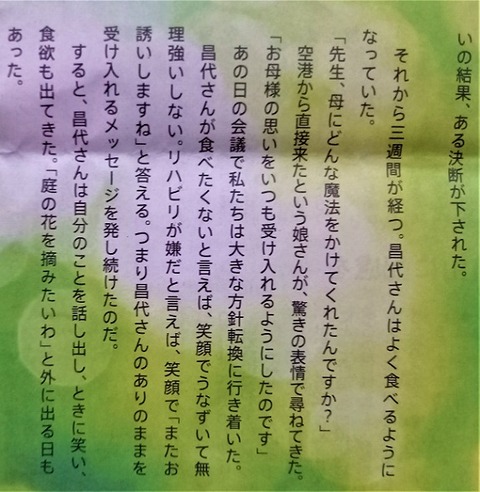 いの結果、ある決断が下された。
それから三週間が経つ。昌代さんはよく食べるように
なっていた。
「先生、母にどんな魔法をかけてくれたんですか？」
空港から直接来たという娘さんが、驚きの表情で尋ねてきた。
「お母様の思いをいつも受け入れるようにしたのです」
あの日の会議で私たちは大きな方針転換に行き着いた。
昌代さんが食べたくないと言えば、笑顔でうなずいて無
理強いしない。リハビリが嫌だと言えば、笑顔で「またお
誘いしますね」と答える。つまり昌代さんのありのままを
受け入れるメッセージを発し続けたのだ。
すると、昌代さんは自分のことを話し出し、ときに笑い、
食欲も出てきた。「庭の花を摘みたいわ」と外に出る日も
あった。